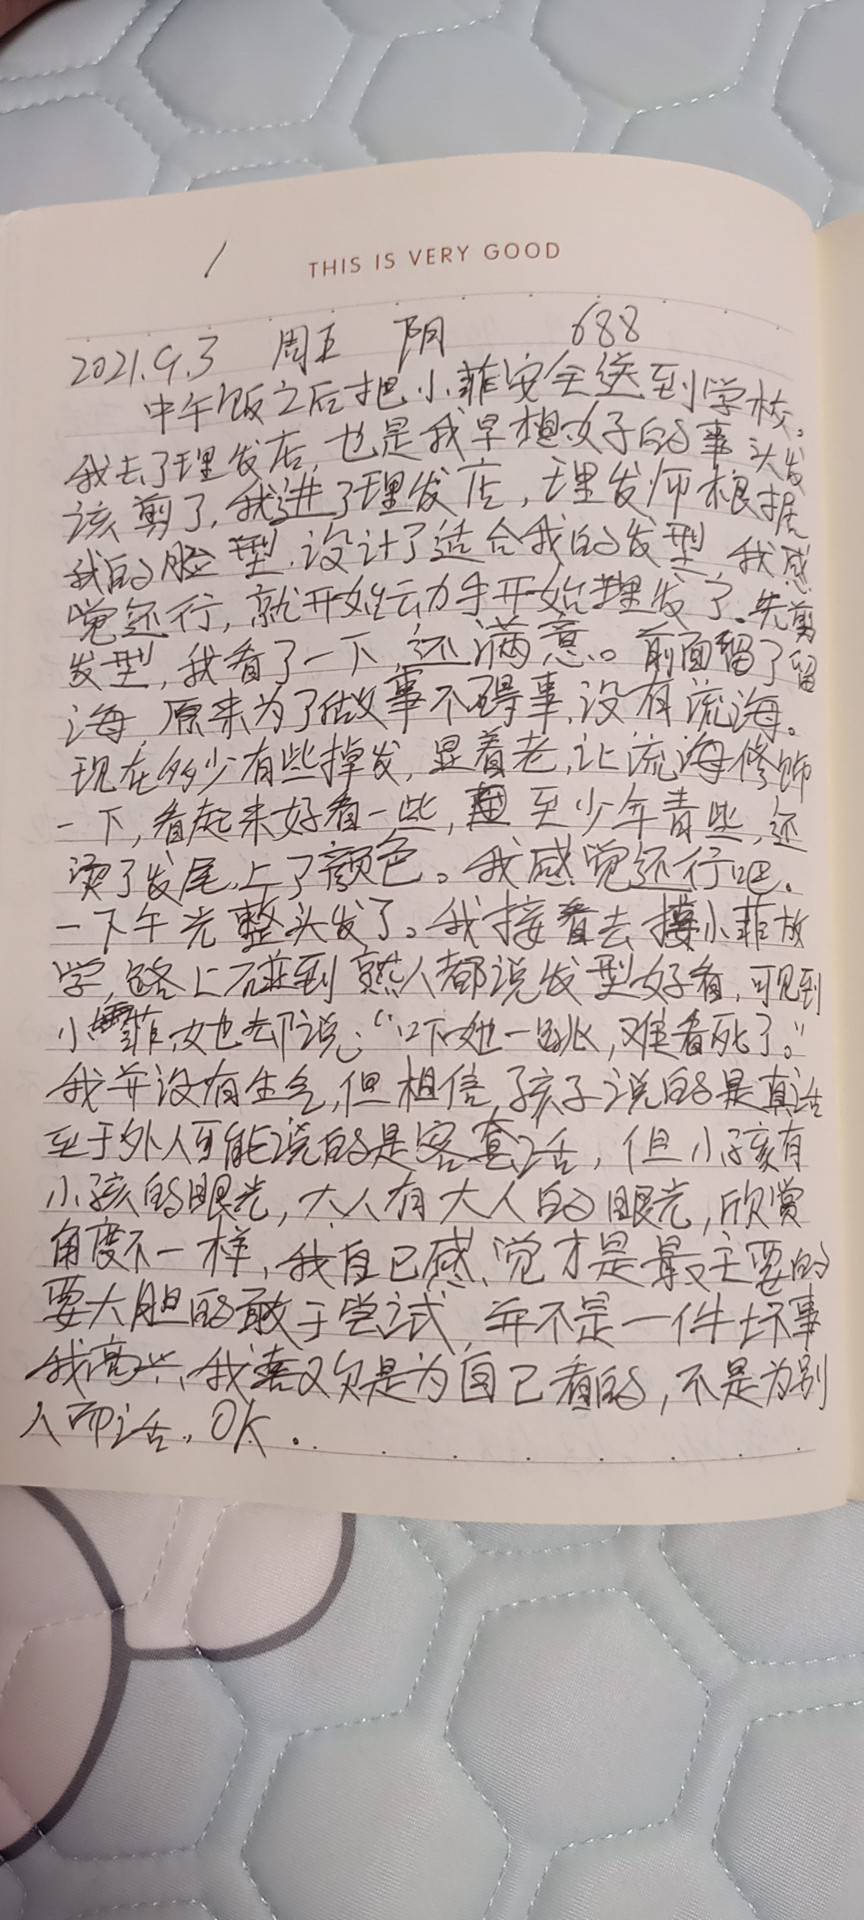 1
THIS IS VERY GOOD
2021.9.3 周五 阴 688
中午饭之后把小菲安全送到学校。
我去了理发店,也是我早想好的事 头发
该剪了,我进了理发店,理发师根据
我的脸型,设计了适合我的发型,我感
觉还行,就开始动手开始理发了。先剪
发型,我看了一下,还满意。前面留了留
海,原来为了做故事不碍事,没有流海。
现在多少有些掉发,显着老,让流海修饰
一下,看起来好看一些,至少年青些,还
烫了发尾,上了颜色。我感觉还行吧。
一下午光整头发了。我接着去接小菲放
学,路上碰到熟人都说发型好看,可见到
小菲,她却说:“吓她一跳,难看死了。”
我并没有生气,但相信孩子说的是真话
至于外人可能说的是客套话,但小孩有
小孩的眼光,大人有大人的眼光,欣赏
角度不一样,我自己感觉才是最主要的
要大胆的敢于尝试,并不是一件坏事
我高兴、我喜欢是为自己看的,不是为别
人而活,OK.